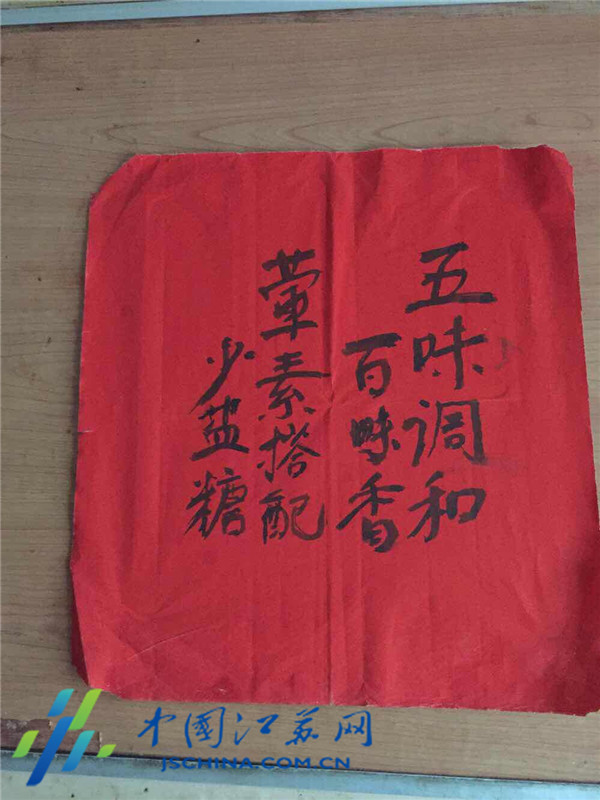 五味调和
百味香
荤素搭配
少盐糖
中国江苏网
JSCHINA.COM.CN